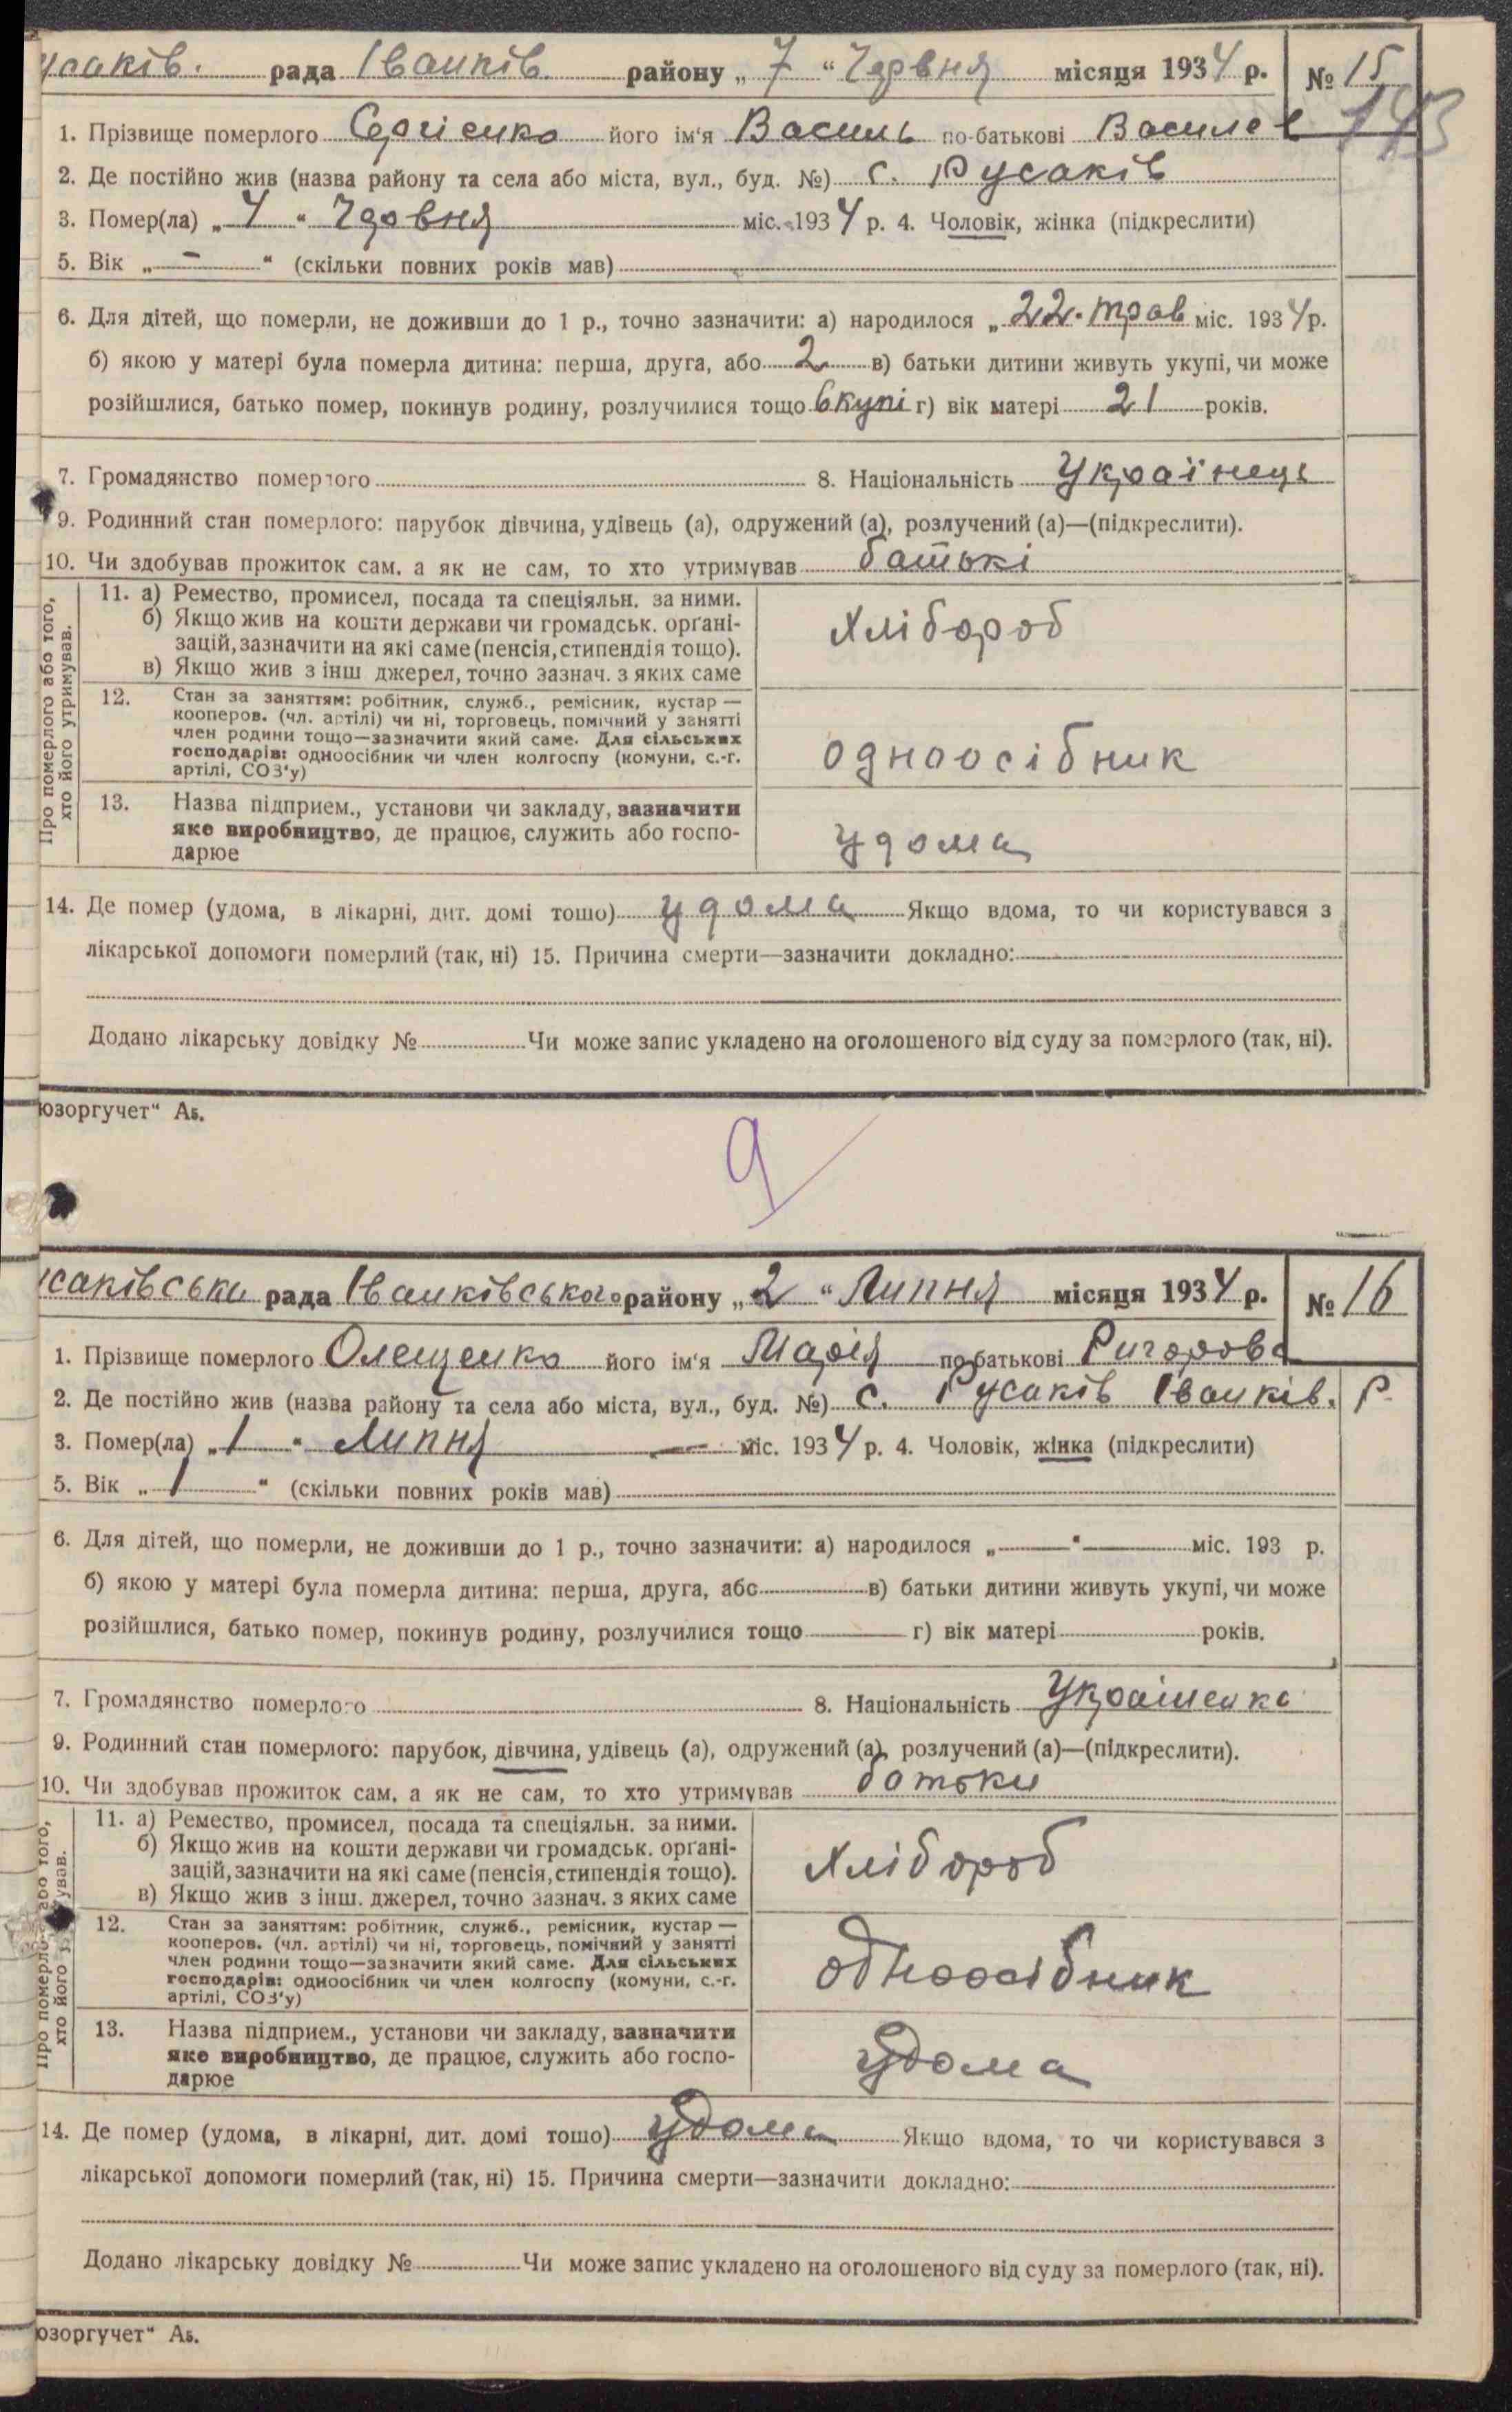 усаків. рада Іванків. району „ 7 “ Червня місяця 1934 р. № 15
143
1. Прізвище померлого Сергієнко його ім'я Василь по-батькові Василев
2. Де постійно жив (назва району та села або міста, вул., буд. №) с. Русаків
3. Помер(ла) „ 4 “ Червня міс. 1934 р. 4. Чоловік, жінка (підкреслити)
5. Вік „ — “ (скільки повних років мав)
6. Для дітей, що померли, не доживши до 1 р., точно зазначити: а) народилося „ 22. трав міс. 1934 р.
б) якою у матері була померла дитина: перша, друга, або 2 в) батьки дитини живуть укупі, чи може
розійшлися, батько помер, покинув родину, розлучилися тощо вкупі г) вік матері 21 років.
7. Громадянство померлого 8. Національність Українець
9. Родинний стан померлого: парубок дівчина, удівець (а), одружений (а), розлучений (а)—(підкреслити).
10. Чи здобував прожиток сам, а як не сам, то хто утримував батькі
Про померлого або того, хто його утримував.
11. а) Ремество, промисел, посада та спеціяльн. за ними.
б) Якщо жив на кошти держави чи громадськ. орґані-
зацій, зазначити на які саме (пенсія, стипендія тощо).
в) Якщо жив з інш джерел, точно зазнач. з яких саме
Хлібороб
12. Стан за заняттям: робітник, служб., ремісник, кустар —
кооперов. (чл. артілі) чи ні, торговець, помічний у занятті
член родини тощо—зазначити який саме. Для сільських
господарів: одноосібник чи член колгоспу (комуни, с.-г.
артілі, СОЗ'у)
одноосібник
13. Назва підприєм., установи чи закладу, зазначити
яке виробництво, де працює, служить або госпо-
дарює
удома
14. Де помер (удома, в лікарні, дит. домі тощо) удома Якщо вдома, то чи користувався з
лікарської допомоги померлий (так, ні) 15. Причина смерти—зазначити докладно:
Додано лікарську довідку № Чи може запис укладено на оголошеного від суду за померлого (так, ні).
юзоргучет“ А5.
9
саківська рада Іванківського району „ 2 “ Липня місяця 1934 р. № 16
1. Прізвище померлого Олещенко його ім'я Марія по-батькові Ригорова
2. Де постійно жив (назва району та села або міста, вул., буд. №) с. Русаків Іванків. Р.
3. Помер(ла) „ 1 “ Липня — міс. 1934 р. 4. Чоловік, жінка (підкреслити)
5. Вік „ 1 “ (скільки повних років мав)
6. Для дітей, що померли, не доживши до 1 р., точно зазначити: а) народилося „ — “ — міс. 193 р.
б) якою у матері була померла дитина: перша, друга, або в) батьки дитини живуть укупі, чи може
розійшлися, батько помер, покинув родину, розлучилися тощо — г) вік матері років.
7. Громадянство померлого 8. Національність Українка
9. Родинний стан померлого: парубок, дівчина, удівець (а), одружений (а), розлучений (а)—(підкреслити).
10. Чи здобував прожиток сам, а як не сам, то хто утримував батьки
Про померлого або того, хто його утримував.
11. а) Ремество, промисел, посада та спеціяльн. за ними.
б) Якщо жив на кошти держави чи громадськ. орґані-
зацій, зазначити на які саме (пенсія, стипендія тощо).
в) Якщо жив з інш. джерел, точно зазнач. з яких саме
Хлібороб
12. Стан за заняттям: робітник, служб., ремісник, кустар —
кооперов. (чл. артілі) чи ні, торговець, помічний у занятті
член родини тощо—зазначити який саме. Для сільських
господарів: одноосібник чи член колгоспу (комуни, с.-г.
артілі, СОЗ'у)
одноосібник
13. Назва підприєм., установи чи закладу, зазначити
яке виробництво, де працює, служить або госпо-
дарює
удома
14. Де помер (удома, в лікарні, дит. домі тощо) удома Якщо вдома, то чи користувався з
лікарської допомоги померлий (так, ні) 15. Причина смерти—зазначити докладно:
Додано лікарську довідку № Чи може запис укладено на оголошеного від суду за померлого (так, ні).
юзоргучет“ А5.